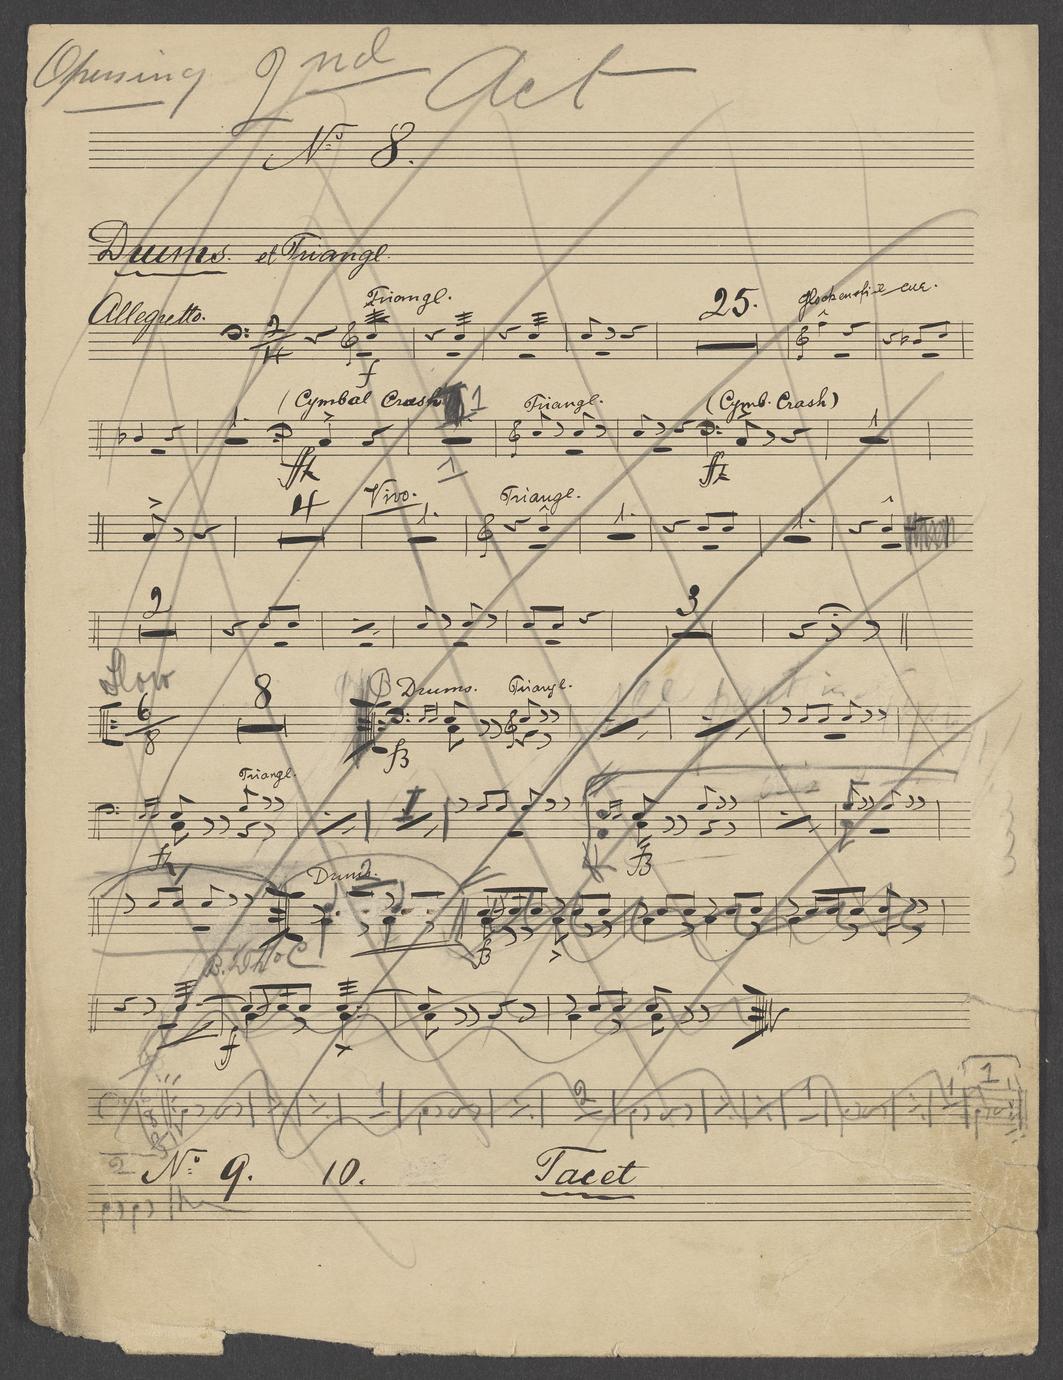 Opening 2nd Act
No 8.
Drums. et Triangl.
Allegretto. Triangl. 25. Glockenspiel cue.
2/4
f
(Cymbal Crash) 1 Triangl. (Cymb. Crash)
1 1
ffz 1 ffz
4 Vivo. 1. Triangl. 1. 1.
2 3
Slow 6/8 8 B Drums. Triangl.
fz
Triangl.
1
fz fz
Drums.
fz
B.
f
1 2 1 1 1
2
No 9. 10. Tacet